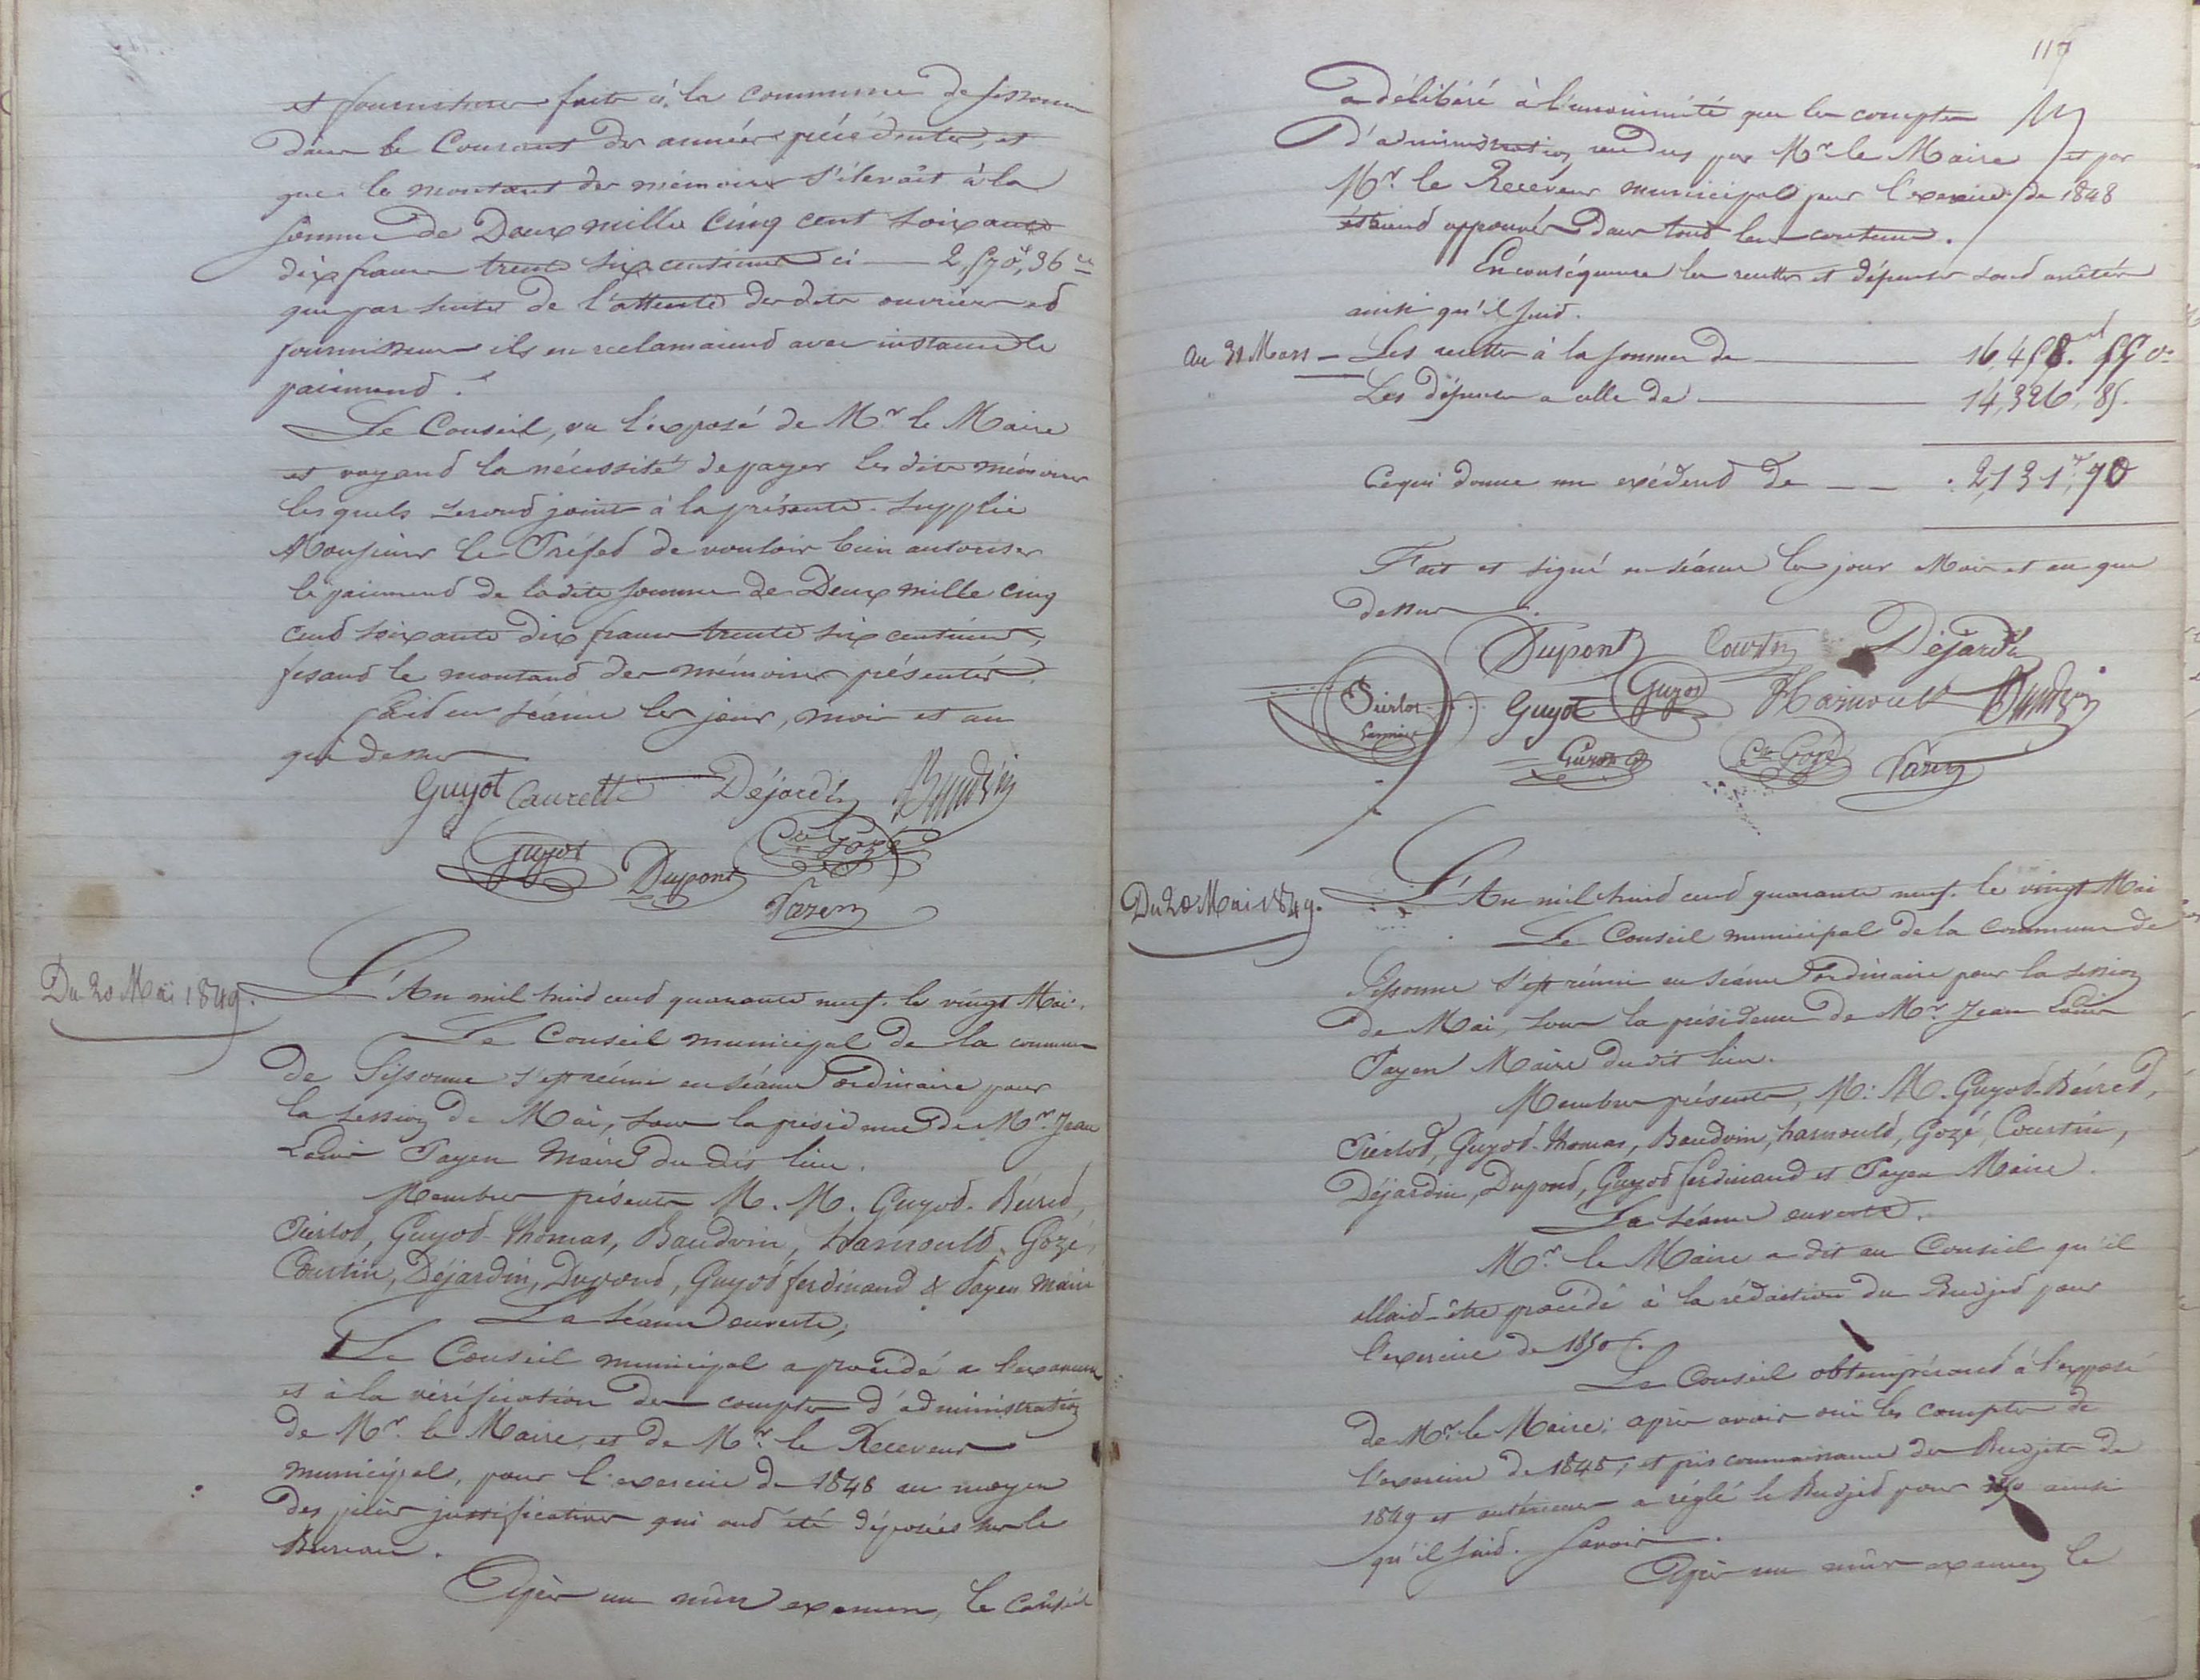 et fourniture faite à la commune de Sissonne
dans le Courant des années précédentes, et
que le montant des mémoires s'élevait à la
somme de Deux mille cinq cent soixante
dix francs trente six centimes ci — 2,570f,36c
que par suite de l'attente des dits ouvriers et
fournisseurs ils en réclamaient avec instance le
paiement.
Le Conseil, vu l'exposé de Mr le Maire
et voyand la nécessité de payer les dits mémoires
lesquels seront joints à la présente. Supplie
Monsieur le Préfet de vouloir bien autoriser
le paiement de la dite somme de Deux mille cinq
cend soixante dix francs trente six centimes,
fesand le montand des mémoires présentés.
Faid en séance les jour, mois et an
que dessus
Guyot Caurette Déjardin Baudvin
Guyot Dupont Cte Gozé
Payen
Du 20 Mai 1849.
L'An mil huid cend quarante neuf. le vingt Mai.
Le Conseil municipal de la commune
de Sissonne s'est réuni en séance ordinaire pour
la session de Mai, sous la présidence de Mr. Jean
Louis Payen Maire du dit lieu.
Membres présents M. M. Guyod-Béired,
Piérlod, Guyod-Thomas, Baudvin, harnould, Gozé,
Courtin, Déjardin, Dupond, Guyod ferdinand & Payen Maire
La séance ouverte,
Le Conseil municipal a procédé a l'examen
et à la vérification des comptes d'administration
de Mr. le Maire, et de Mr. le Receveur
municipal, pour l'exercice de 1848 au moyen
des pièces justificatives qui ond été déposées sur le
Bureau.
Après un mûr examen, le Conseil
117
a délibéré à l'unanimité que les comptes
d'administration rendus par Mr le Maire et par
Mr. le Receveur municipal pour l'exercice de 1848
étaiend approuvés dans tous leur contenu.
En conséquence les recettes et dépenses sond arrêtées
ainsi qu'il suid.
Au 31 Mars — Les recettes à la somme de — 16,458.f 55c
Les dépenses a celle de — 14,326,85.
Ce qui donne un excédend de — 2,131f,70
Fait et signé en séance les jour Mois et an que
dessus.
Dupont Courtin Déjardin
Piérlot Guyot Guyod Harnoult Baudvin
Cte Gozé Payen
Du 20 Mai 1849.
L'An mil huid cend quarante neuf. le vingt Mai
Le Conseil municipal de la commune de
Sissonne s'est réuni en séance ordinaire pour la session
de Mai, sous la présidence de Mr. Jean Louis
Payen Maire du dit lieu.
Membres présents, M. M. Guyod-Béired,
Piérlod, Guyod-thomas, Baudvin, harnould, Gozé, Courtin,
Déjardin, Dupond, Guyod ferdinand et Payen Maire.
La séance ouverte.
Mr. le Maire a dit au Conseil qu'il
allaid être procédé à la rédaction du Budjed pour
l'exercice de 1850.
Le Conseil obtempérand à l'exposé
de Mr. le Maire; après avoir oui les comptes de
l'exercice de 1848, et pris connaissance des Budjets de
1849 et antérieurs a réglé le Budjed pour 1850 ainsi
qu'il suid. Savoir.
Après un mûr examen le